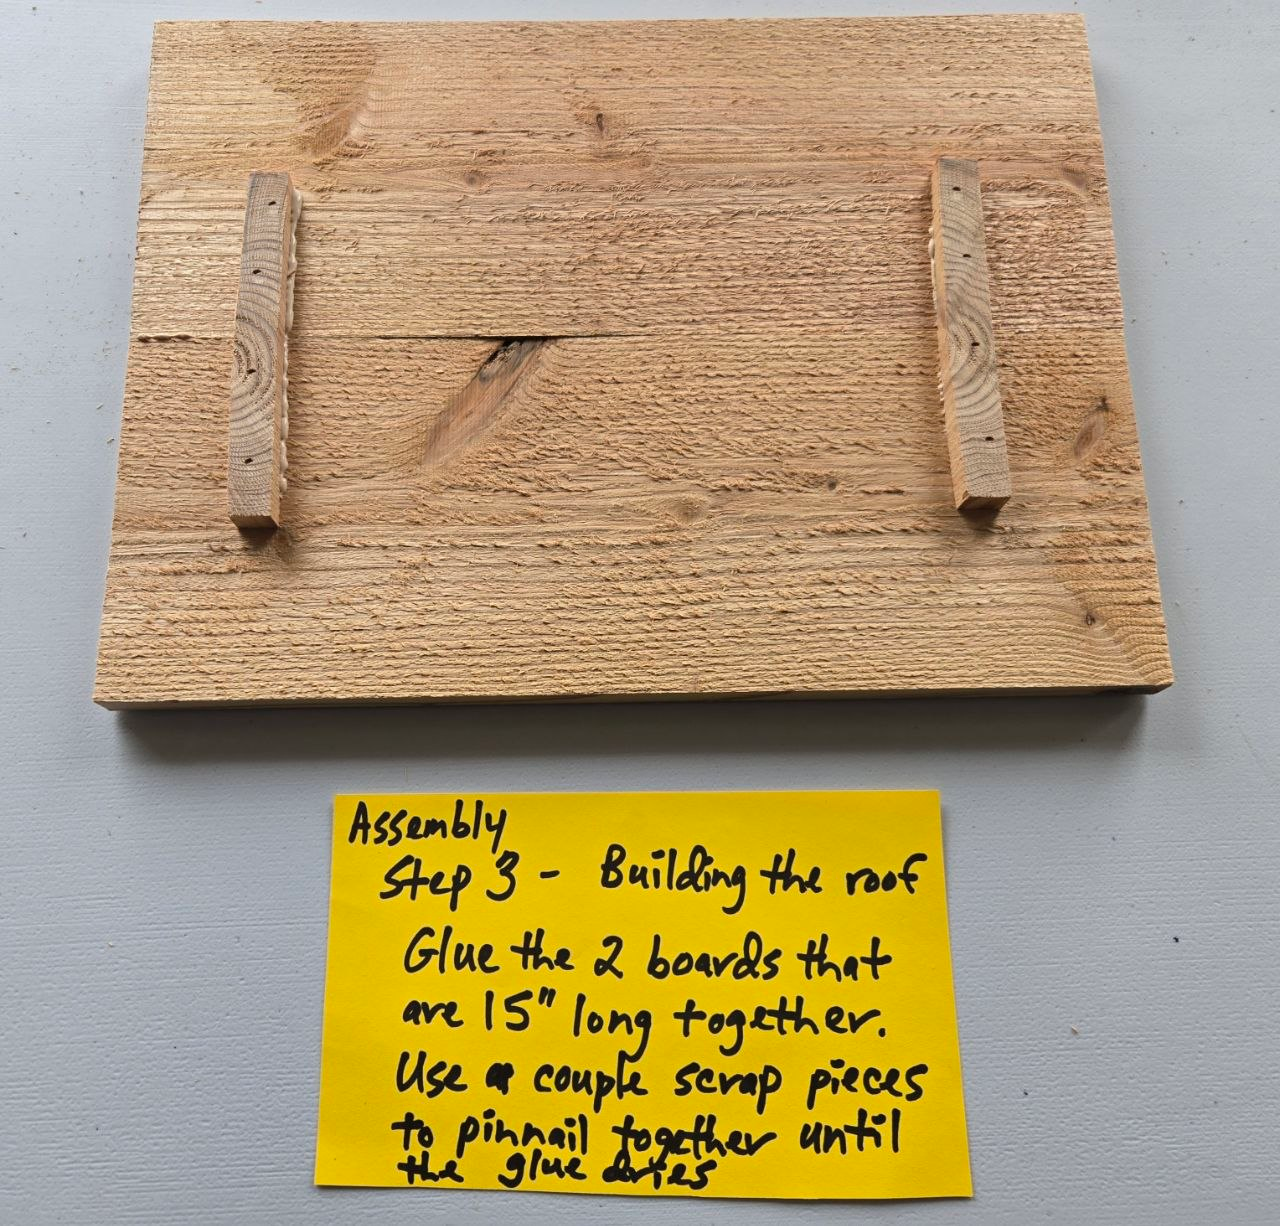 Assembly
Step 3 - Building the roof
Glue the 2 boards that
are 15" long together.
Use a couple scrap pieces
to pinnail together until
the glue dries